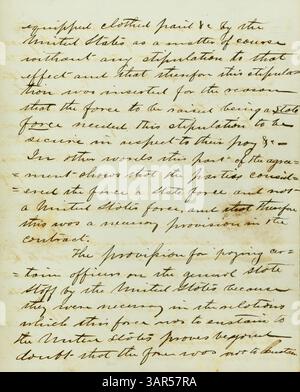 equipped clothed paid &c by the
United States as a matter of course
without any stipulation to that
effect and that therefore this stipula
tion was inserted for the reason
that the force to be raised being a State
force needed this stipulation to be
secure in respect to their pay &c
In other words this part of the agree
=ment shows that the parties consid=
=ered the force a State force and not
a United States force, and that therefore
this was a necessary provision in the
contract.
The provision for paying cer=
=tain officers on the general State
Staff by the United States because
they were necessary in the relations
which this force was to sustain to
the United States proves beyond
doubt that the force was not to
alamy
Image ID: 3AR57RA
www.alamy.com